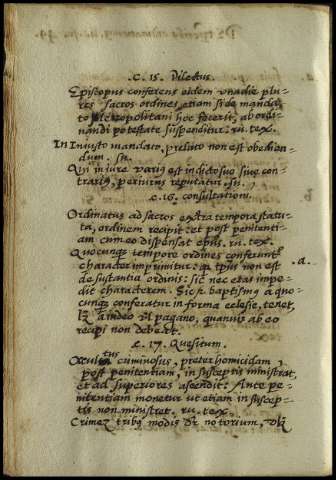 .C. 15. Dilectus.
Episcopus conferens eidem una die plu-
res sacros ordines, etiam si de manda-
to metropolitani hoc fecerit, ab ordi-
nandi potestate suspenditur. ru. tex.
In Iniusto mandato, prelato non est obedien-
dum. su.
Qui in iure varius est in dictos suo con-
trarius, periurus reputatur. su.
C. 16. consultationi.
Ordinatus ad sacros extra tempora statu-
ta, ordinem recipit et post penitenti-
am cum eo dispensat epus. ru. tex.
Quocunqz tempore ordines conferunt
character imprimitur: qz tpus non est
de sustantia ordinis: sic nec etas impe-
dit characterem. Sic baptismo a quo-
cunqz conferatur in forma eclesie, tenet,
lz a iudeo vel pagano, quanvis ab eo
recipi non debet.
.a.
C. 17. Quesitum.
Occultus criminosus, preter homicidam,
post penitentiam, in susceptis ministrat,
et ad superiores ascendit. Ante pe-
nitentiam monetur ut etiam in suscep-
tis non ministret. ru. tex.
Crimen tribqz modis dr notorium,